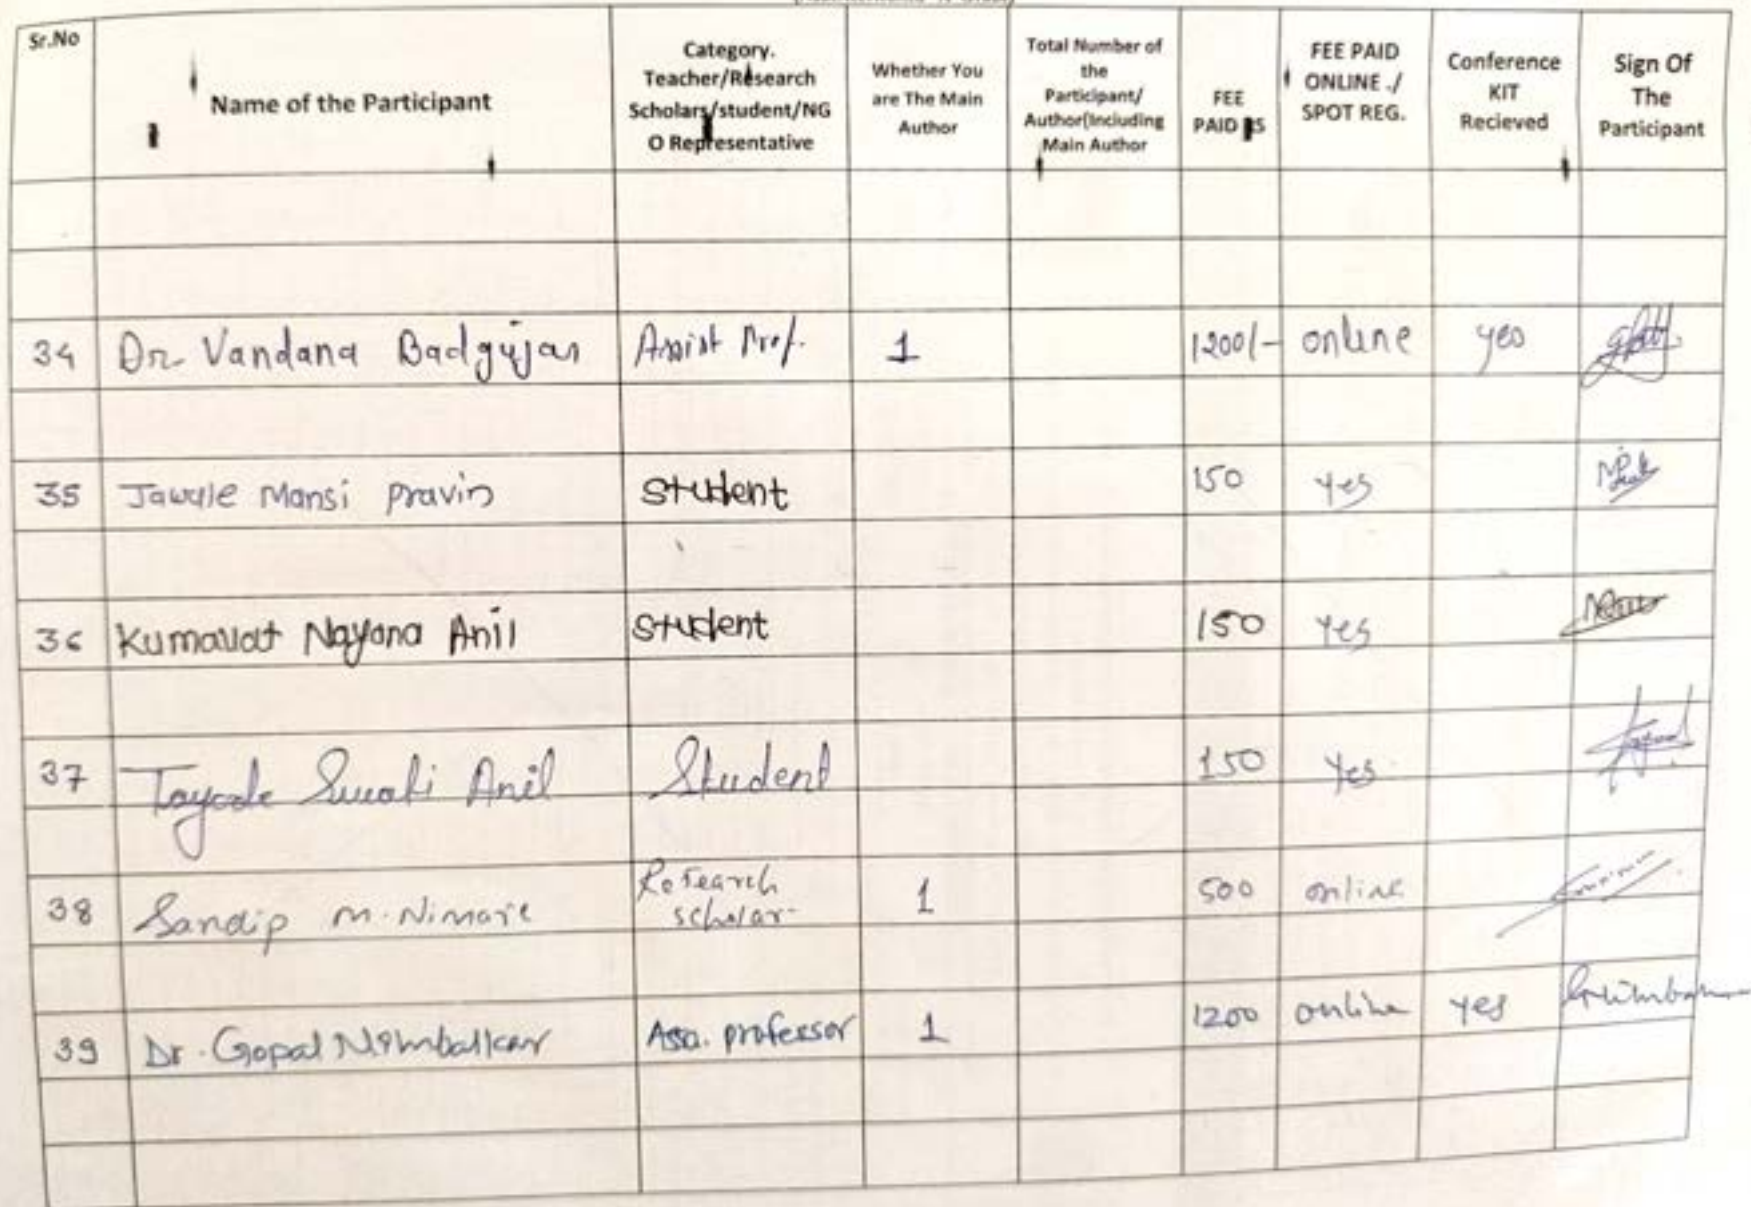 Sr.No
Name of the Participant
Category.
Teacher/Research
Scholars/student/NG
O Representative
Whether You
are The Main
Author
Total Number of
the
Participant/
Author(Including
Main Author
FEE
PAID RS
FEE PAID
ONLINE ./
SPOT REG.
Conference
KIT
Recieved
Sign Of
The
Participant
34 Dr. Vandana Badgujar Assist Prof. 1 1200/- online yes
35 Jawale Mansi pravin Student 150 yes
36 Kumavat Nayana Anil Student 150 yes
37 Tayade Swati Anil Student 150 yes
38 Sandip M. Nimare Research 1 500 online
scholar
39 Dr. Gopal Nimbalkar Asso. professor 1 1200 online yes